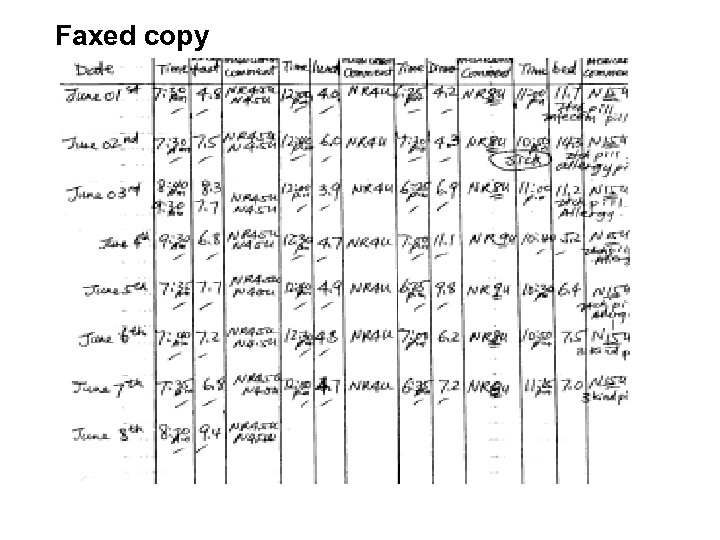 Faxed copy
Date Time fast comment Time lunch comment Time Dinner Comment Time bed comment
June 01st 7:30 am 4.8 NR45u 12:00 pm 4.0 NR4u 6:35 pm 4.2 NR8u 11:00 pm 11.7 N15u
N45u pill
pill
June 02nd 7:30 am 7.5 NR45u 12:00 pm 6.0 NR4u 7:30 pm 4.3 NR8u 10:50 pm 14.3 N15u
N45u sick pill
allergy pi
June 03rd 8:00 am 8.3 NR45u 12:00 pm 3.9 NR4u 6:35 pm 6.9 NR8u 11:00 pm 11.2 N15u
9:30 7.7 N45u pill
Allergy
June 4th 9:30 am 6.8 NR45u 12:30 pm 4.7 NR4u 7:00 pm 11.1 NR9u 10:40 pm 5.2 N15u
N45u
Allerg
June 5th 7:35 am 7.7 NR45u 4.9 NR4u 6:35 pm 9.8 NR8u 10:30 pm 6.4 N15u
pi
Allergi
June 6th 7:00 am 7.2 NR45u 12:30 pm 4.8 NR4u 7:00 pm 6.2 NR8u 10:50 pm 7.5 N15u
N45u kind p
June 7th 7:35 am 6.8 NR45u 12:00 pm 4.7 NR4u 6:35 pm 7.2 NR8u 11:35 pm 7.0 N15u
N45u 3 kind pi
June 8th 8:30 am 9.4 NR45u
N45u